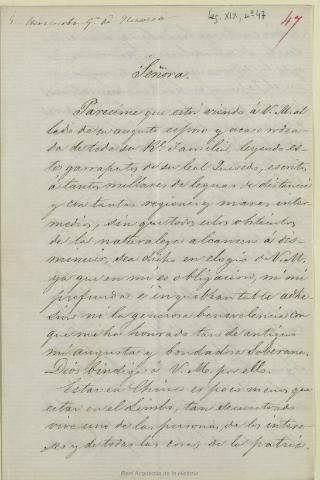 Leg. XIX, nº 47
47
Señora.
Paréceme que estoy viendo á V. M. al
lado de su augusto esposo y acaso rodea
da de toda su Rl. Familia, leyendo es
tos garrapatos de su leal Quevedo, escritos
á tantos millares de leguas de distancia
y con tantas regiones y mares inter
medios, sin que todos estos obstáculos
de la naturaleza alcancen á des
menuir, sea dicho en elogio de V. M.
ya que en mí es obligacion, ni mi
profunda é inquebrantable adhe
sion ni la generosa benevolencia con
que me ha honrado tan de antiguo
mi augusta y bondadosa Soberana.
Dios bendiga á V. M. por ello.
Estar en China es poco menos que
estar en el Limbo, tan desconectado
vive uno de las personas, de los intere
ses y de todas las cosas de la patria.
Real Academia de la Historia